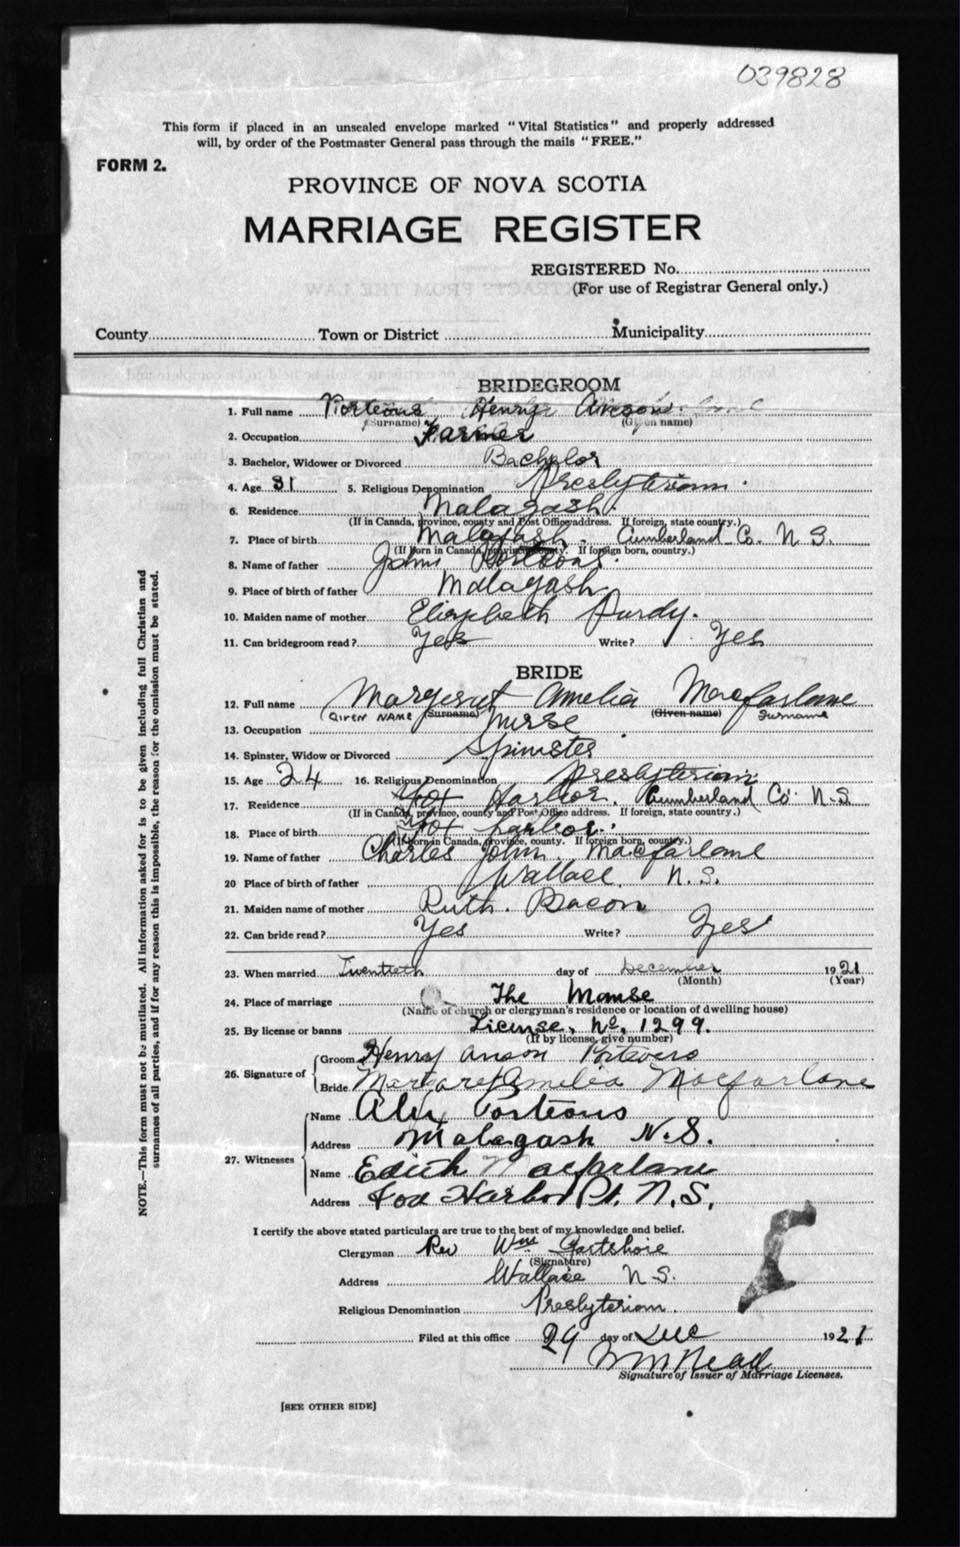 039828
This form if placed in an unsealed envelope marked "Vital Statistics" and properly addressed
will, by order of the Postmaster General pass through the mails "FREE."
FORM 2.
PROVINCE OF NOVA SCOTIA
MARRIAGE REGISTER
REGISTERED No.
(For use of Registrar General only.)
County Town or District Municipality
BRIDEGROOM
1. Full name Porteous Henry Anson
(Surname) (Given name)
2. Occupation Farmer
3. Bachelor, Widower or Divorced Bachelor
4. Age 31 5. Religious Denomination Presbyterian.
6. Residence Malagash.
(If in Canada, province, county and Post Office address. If foreign, state country.)
7. Place of birth Malagash. Cumberland Co. N S.
(If born in Canada, province, county. If foreign born, country.)
8. Name of father John Porteous.
9. Place of birth of father Malagash
10. Maiden name of mother Elizabeth Purdy.
11. Can bridegroom read? Yes Write? Yes
BRIDE
12. Full name Margaret Amelia Macfarlane
GIVEN NAME (Surname) (Given name) Surname
13. Occupation Nurse
14. Spinster, Widow or Divorced Spinster
15. Age 24 16. Religious Denomination Presbyterian
17. Residence Fox Harbor. Cumberland Co. N.S.
(If in Canada, province, county and Post Office address. If foreign, state country.)
18. Place of birth Fox harbor.
(If born in Canada, province, county. If foreign born, country.)
19. Name of father Charles John Macfarlane
20 Place of birth of father Wallace. N.S.
21. Maiden name of mother Ruth. Bacon
22. Can bride read? Yes Write? Yes
23. When married Twentieth day of December 1921
(Month) (Year)
24. Place of marriage The Manse
(Name of church or clergyman's residence or location of dwelling house)
25. By license or banns License, No. 1299.
(If by license, give number)
26. Signature of
Groom Henry Anson Porteous
Bride Margaret Amelia Macfarlane
27. Witnesses
Name Alex Porteous
Address Malagash N.S.
Name Edith Macfarlane
Address Fox Harbor Pt. N.S.
I certify the above stated particulars are true to the best of my knowledge and belief.
Clergyman Rev Wm Gartshore
(Signature)
Address Wallace N S.
Religious Denomination Presbyterian.
Filed at this office 29 day of Dec 1921
Signature of Issuer of Marriage Licenses.
[SEE OTHER SIDE]
NOTE.—This form must not be mutilated. All information asked for is to be given including full Christian and
surnames of all parties, and if for any reason this is impossible, the reason for the omission must be stated.